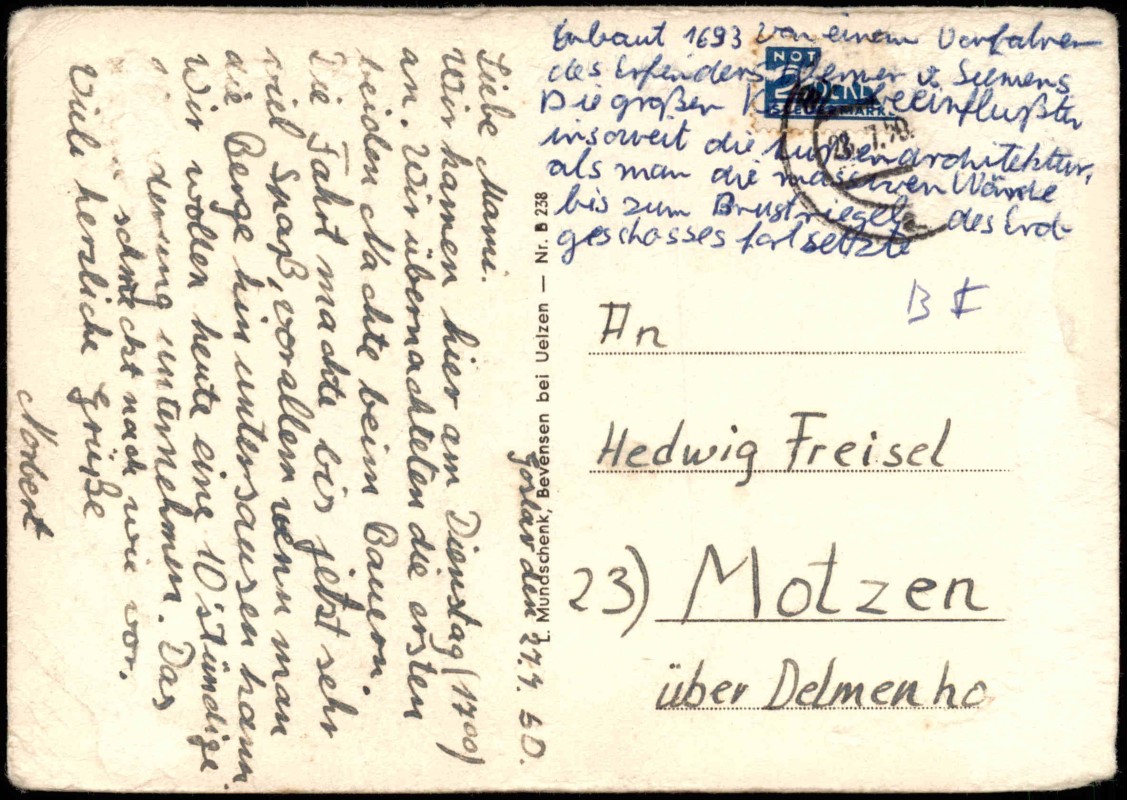 Goslar den 27.7.50.
Liebe Mami.
Wir kamen hier am Dienstag (1700)
an. Wir übernachteten die ersten
beiden Nächte beim Bauern.
Die Fahrt machte bis jetzt sehr
viel Spaß, vorallem wenn man
die Berge hinuntersausen kann.
Wir wollen heute eine 10 stündige
derung unternehmen. Das
schmeckt nach wie vor.
Viele herzliche Grüße
Norbert
L. Mundschenk, Bevensen bei Uelzen — Nr. B 238
Erbaut 1693 von einem Vorfahren
des Erfinders Werner v. Siemens
Die großen beeinflußten
insoweit die Außenarchitektur,
als man die massiven Wände
bis zum Brustriegel des Erd-
geschosses fortsetzte
NOT
2
STEUERMARKE
28.7.50
B I
An
Hedwig Freisel
23) Motzen
über Delmenho